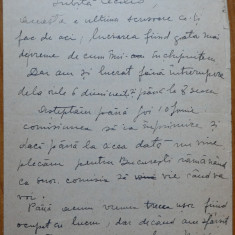 Iubită Cecilia
Aceasta e ultima scrisoare ce-ți
fac de aci, lucrarea fiind gata mai
devreme de cum îmi închipuiam.
Dar am și lucrat fără întrerupere
dela orele 6 dimineață până la 8 seara.
Așteptăm până joi 10 Iunie
comisiunea să va
dacă până la acea dată nu vine
plecăm pentru București rămânând
ca comisia să vie când va
voi.
Până acum vremea trece ușor fiind
ocupat cu lucru, dar decând am sfârșit